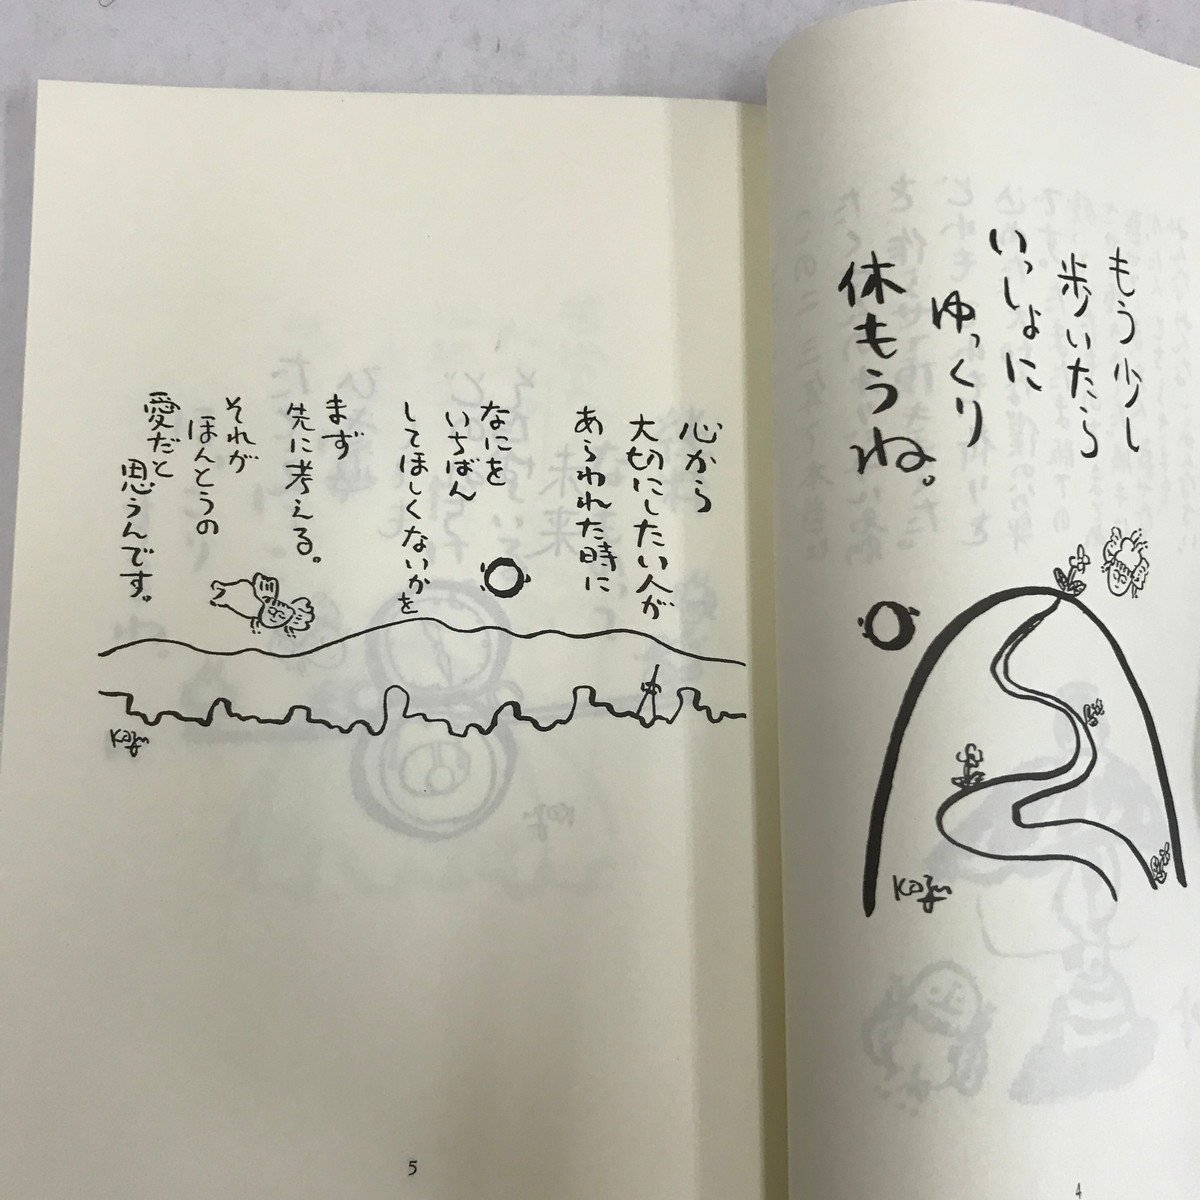 もう少し
歩いたら
いっしょに
ゆっくり
休もうね。
Kazu
4
心から
大切にしたい人が
あらわれた時に
なにを
いちばん
してほしくないかを
まず
先に考える。
それが
ほんとうの
愛だと
思うんです。
Kazu
5